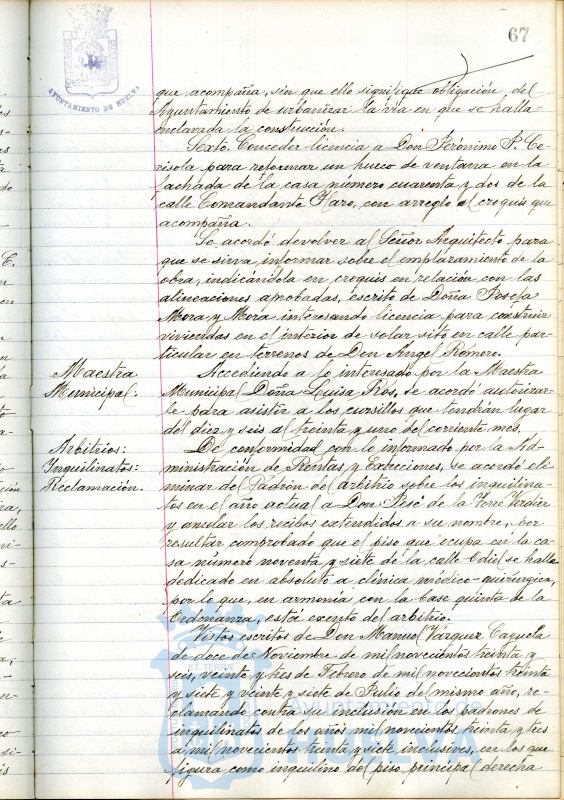 67
AYUNTAMIENTO DE HUELVA
que acompaña, sin que ello signifique obligación del
Ayuntamiento de urbanizar la vía en que se halla
enclavada la construcción.
Sexto. Conceder licencia a Don Jerónimo P. Ce-
risola para reformar un hueco de ventana en la
fachada de la casa número cuarenta y dos de la
calle Comandante Haro, con arreglo al croquis que
acompaña.
Se acordó devolver al Señor Arquitecto para
que se sirva informar sobre el emplazamiento de la
obra, indicándola en croquis en relación con las
alineaciones aprobadas, escrito de Doña Josefa
Mora y Mora interesando licencia para construir
viviendas en el interior de solar sito en calle par-
ticular en terrenos de Don Angel Romero.
Maestra
Municipal:
Accediendo a lo interesado por la Maestra
Municipal Doña Luisa Ros, se acordó autorizar-
le para asistir a los cursillos que tendrán lugar
del diez y seis al treinta y uno del corriente mes.
Arbitrios:
Inquilinatos:
Reclamación.
De conformidad con lo informado por la Ad-
ministración de Rentas y Exacciones, se acordó eli-
minar del Padrón del arbitrio sobre los inquilina-
tos en el año actual a Don José de la Torre Verdier
y anular los recibos extendidos a su nombre, por
resultar comprobado que el piso que ocupa en la ca-
sa número noventa y siete de la calle Odiel se halla
dedicado en absoluto a clínica médico-quirúrgica,
por lo que, en armonía con la base quinta de la
Ordenanza, está exento del arbitrio.
Vistos escritos de Don Manuel Vázquez Cazuela
de doce de Noviembre de mil novecientos treinta y
seis, veinte y tres de Febrero de mil novecientos treinta
y siete y veinte y siete de Julio del mismo año, re-
clamando contra su inclusión en los padrones de
inquilinatos de los años mil novecientos treinta y tres
a mil novecientos treinta y siete inclusives, en los que
figura como inquilino del piso principal derecha